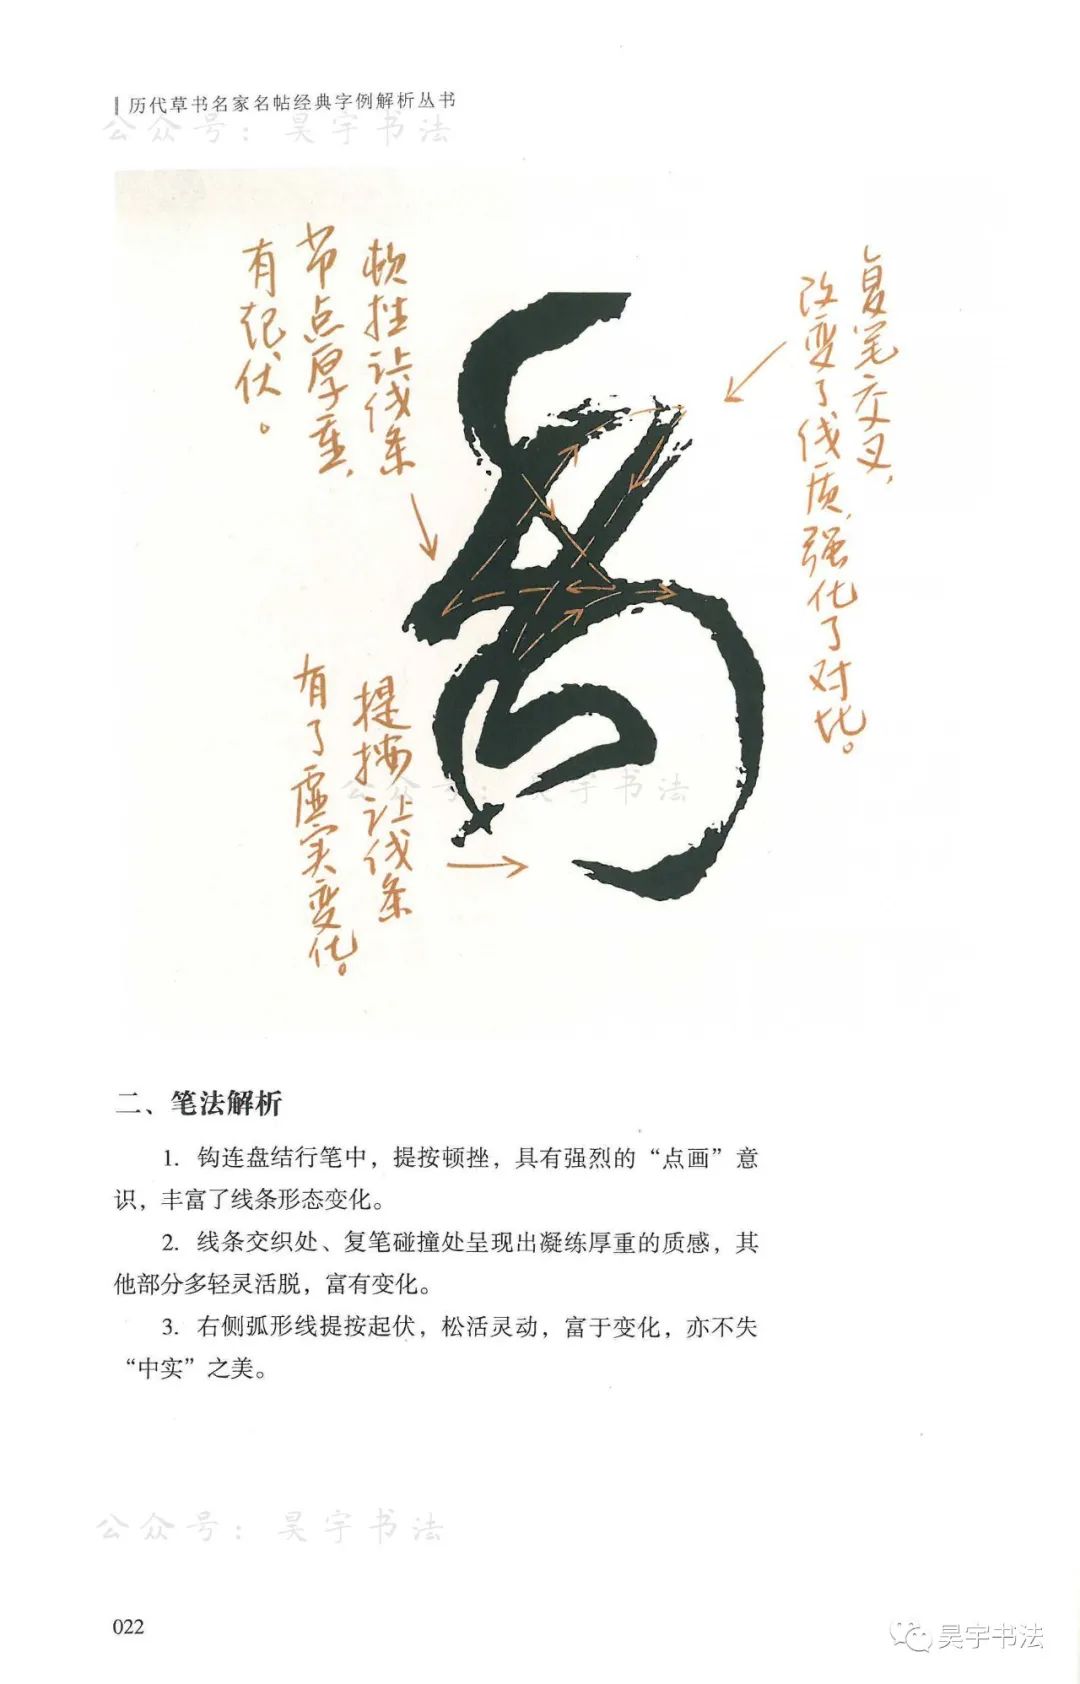 历代草书名家名帖经典字例解析丛书
公众号：昊宇书法
复笔交叉，
改变了线质，强化了对比。
顿挫让线条
节点厚重，
有起伏。
提按让线条
有了虚实变化。
公众号：昊宇书法
二、笔法解析
1. 钩连盘结行笔中，提按顿挫，具有强烈的“点画”意
识，丰富了线条形态变化。
2. 线条交织处、复笔碰撞处呈现出凝练厚重的质感，其
他部分多轻灵活脱，富有变化。
3. 右侧弧形线提按起伏，松活灵动，富于变化，亦不失
“中实”之美。
公众号：昊宇书法
022
昊宇书法